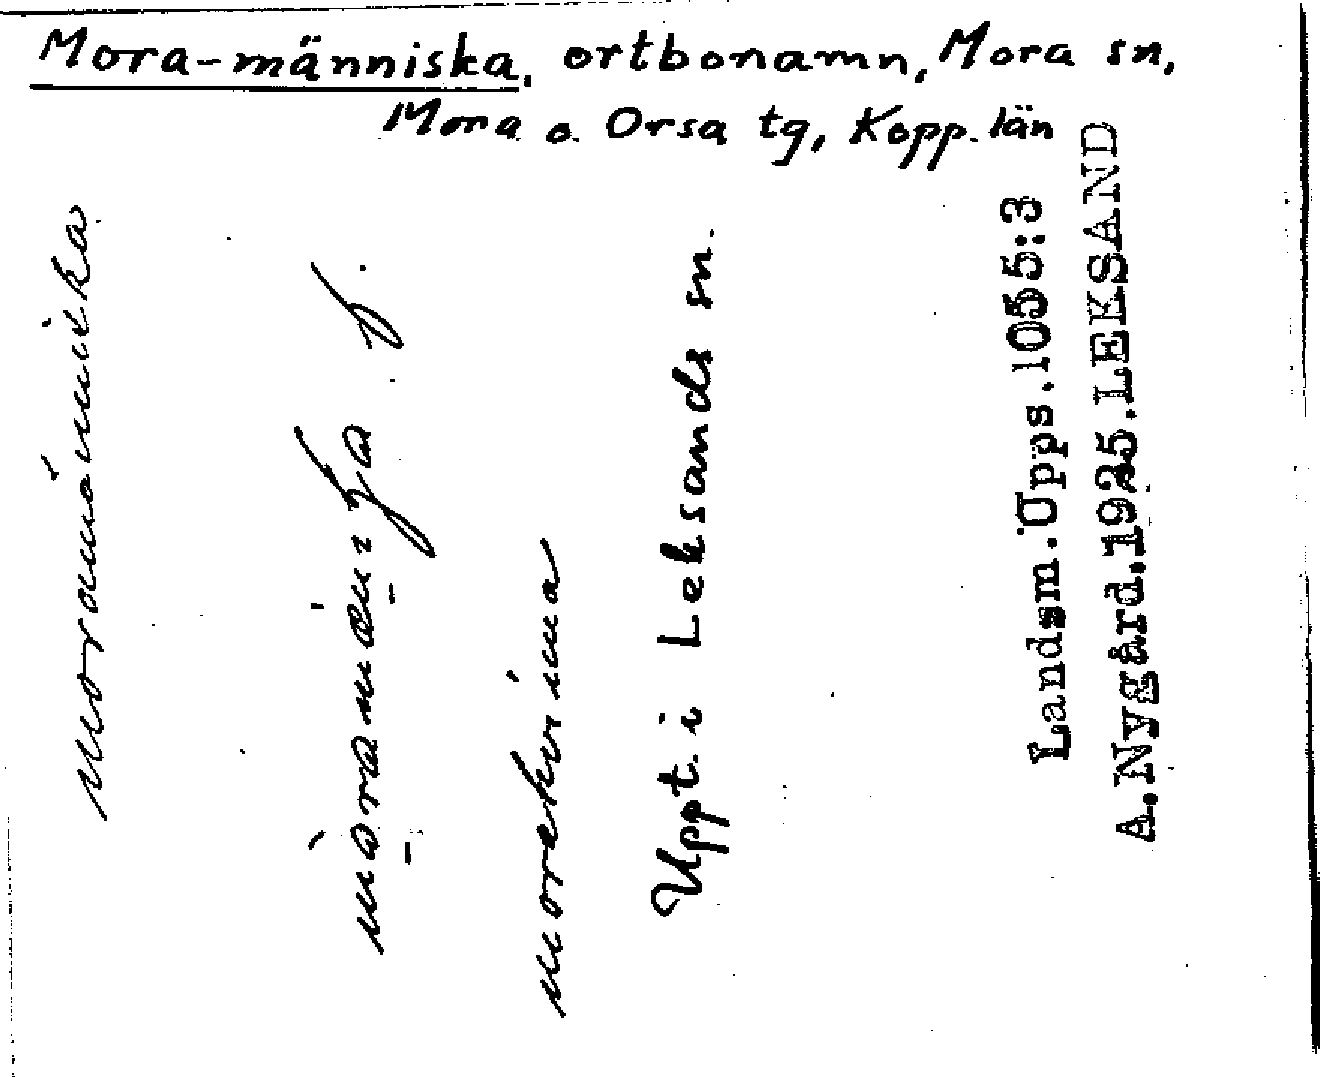 Mora-människa, ortbonamn, Mora sn,
Mora o. Orsa tg, Kopp. län
moramänniska
f.
morakvinna
Uppt. i Leksands sn.
Landsm. Upps. 1055:3
A. Nygård. 1925. LEKSAND